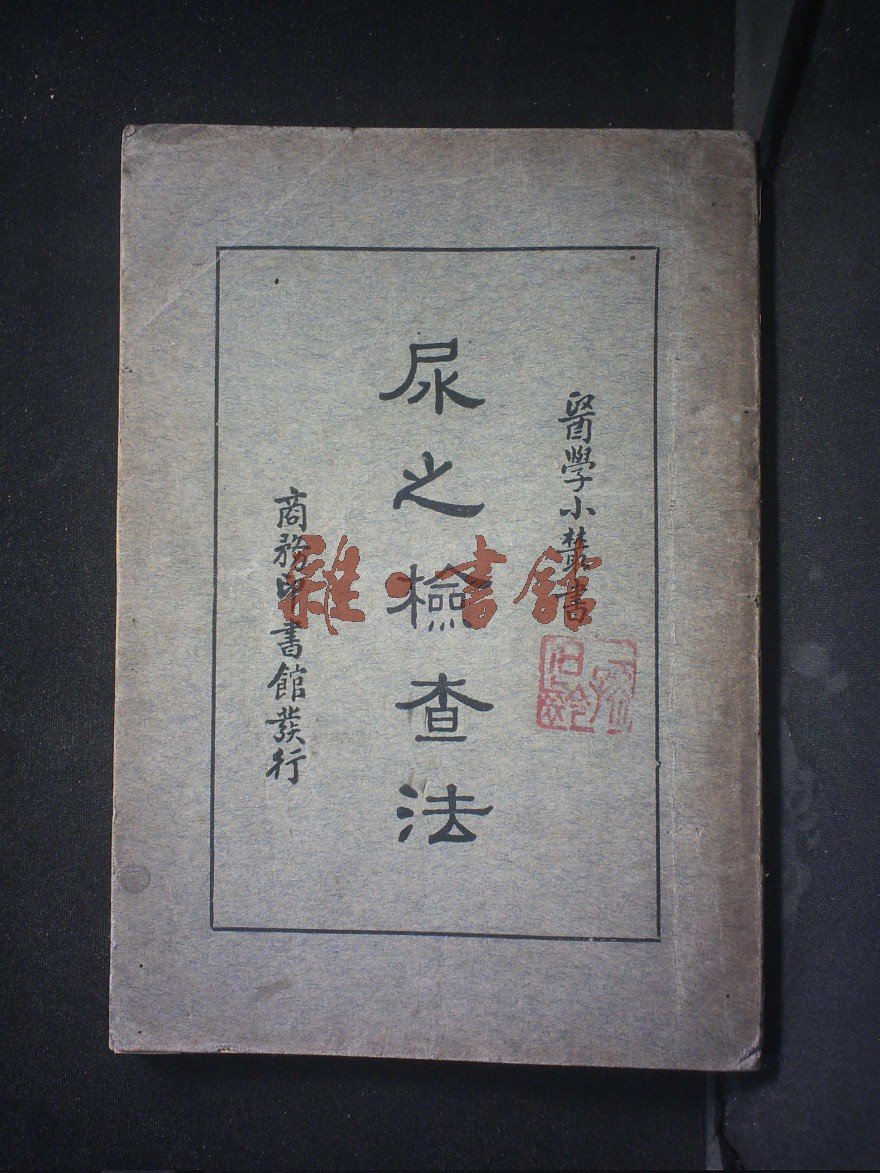 醫學小叢書
尿之檢查法
商務印書館發行
雜·書館